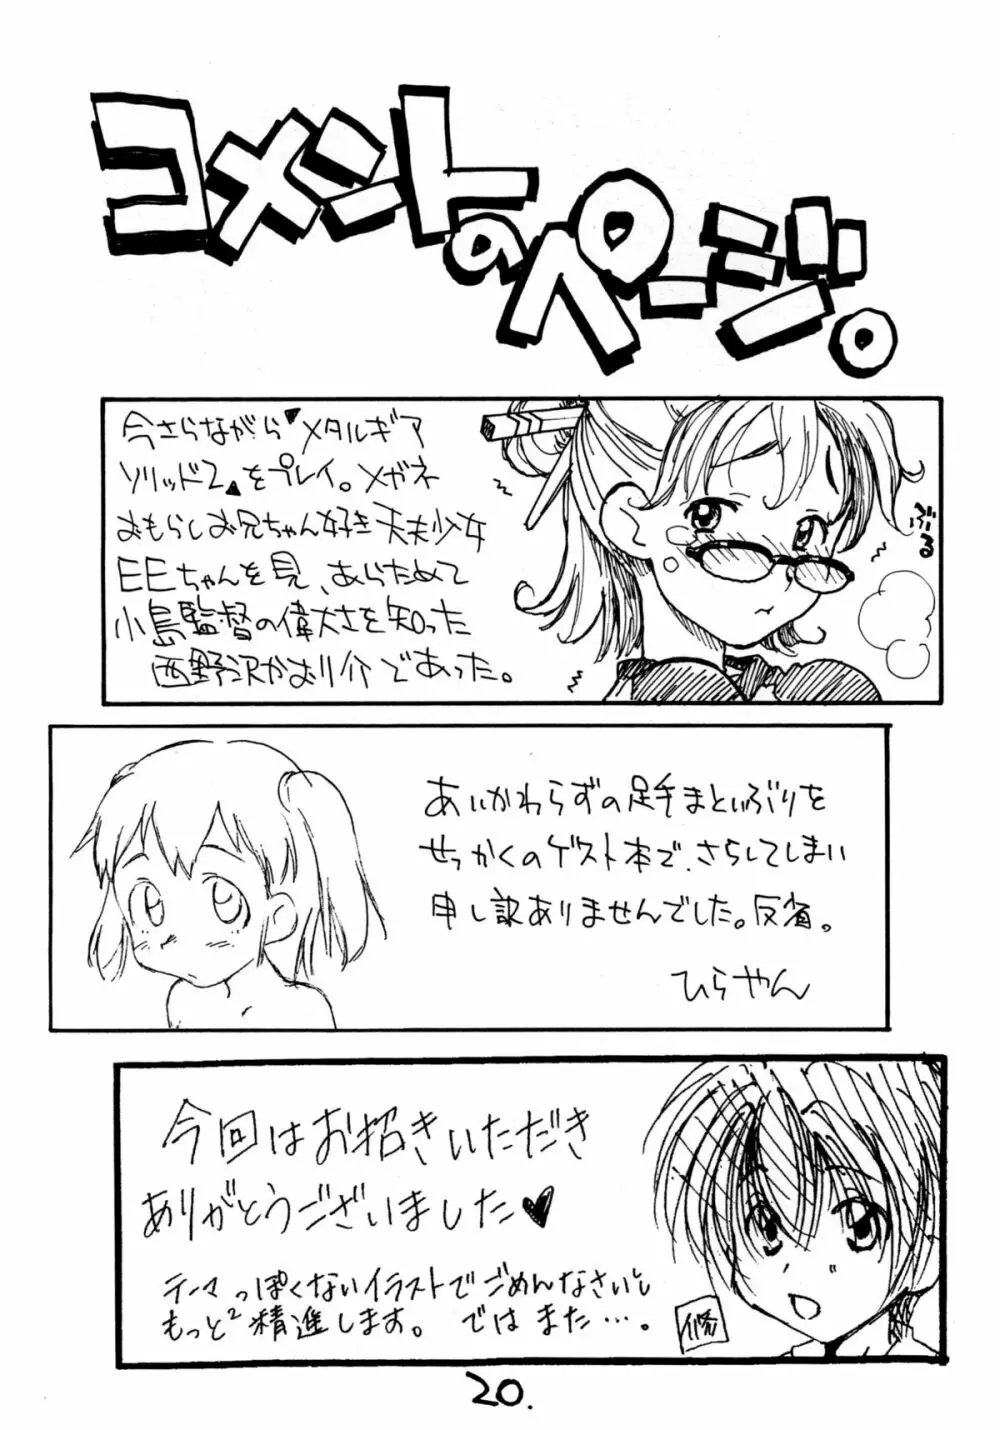 コメントのページ。
今さらながら「メタルギア
ソリッド2」をプレイ。メガネ
おもらしお兄ちゃん好き天才少女
EEちゃんを見、あらためて
小島監督の偉大さを知った
西野沢かおり介であった。
ぶる
あいかわらずの足手まといぶりを
せっかくのゲスト本で、さらしてしまい
申し訳ありませんでした。反省。
ひらやん
今回はお招きいただき
ありがとうございました♥
テーマっぽくないイラストでごめんなさい
もっと²精進します。ではまた…。
修
20.